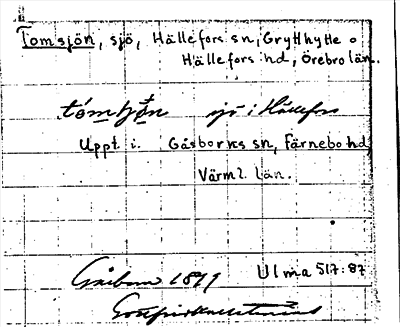 Tomsjön, sjö, Hällefors sn, Grythytte o
Hällefors hd, Örebro län.
tómʃǿn sjö i Hällefors
Uppt. i. Gåsborns sn, Färnebo hd
Värml. län.
Gåsborn 1899 Ulma 517:87